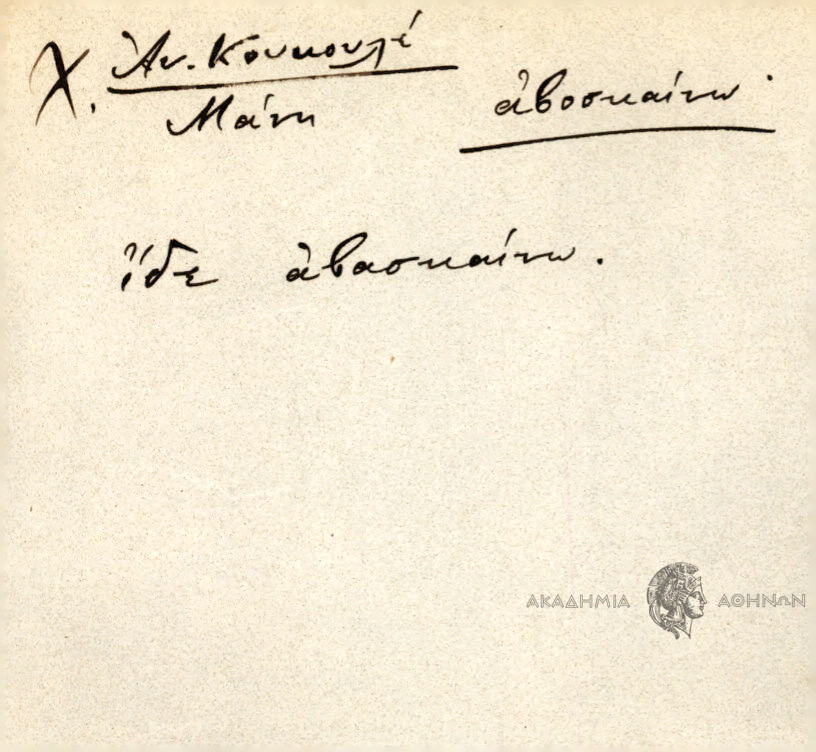 Χ. Ἀν. Κουκουλέ
Μάνη
ἀβοσκαίνω·
ἴδε ἀβασκαίνω.
ΑΚΑΔΗΜΙΑ ΑΘΗΝΩΝ